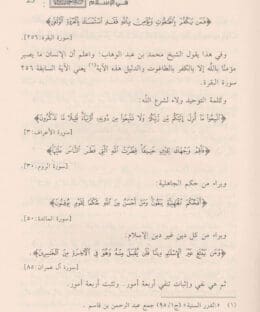 في الإسلام
﴿فَمَن يَكْفُرْ بِالطَّاغُوتِ وَيُؤْمِن بِاللَّهِ فَقَدِ اسْتَمْسَكَ بِالْعُرْوَةِ الْوُثْقَى﴾
[سورة البقرة: ٢٥٦].
وفي هذا يقول الشيخ محمد بن عبد الوهاب: واعلم أن الإنسان ما يصير
مؤمنًا بالله إلا بالكفر بالطاغوت والدليل هذه الآية(١) يعني الآية السابقة ٢٥٦
سورة البقرة.
وكلمة التوحيد ولاء لشرع الله:
﴿اتَّبِعُوا مَا أُنزِلَ إِلَيْكُم مِّن رَّبِّكُمْ وَلَا تَتَّبِعُوا مِن دُونِهِ أَوْلِيَاءَ قَلِيلًا مَّا تَذَكَّرُونَ﴾
[سورة الأعراف: ٣].
﴿فَأَقِمْ وَجْهَكَ لِلدِّينِ حَنِيفًا فِطْرَتَ اللَّهِ الَّتِي فَطَرَ النَّاسَ عَلَيْهَا﴾
[سورة الروم: ٣٠].
وبراء من حكم الجاهلية:
﴿أَفَحُكْمَ الْجَاهِلِيَّةِ يَبْغُونَ وَمَنْ أَحْسَنُ مِنَ اللَّهِ حُكْمًا لِّقَوْمٍ يُوقِنُونَ﴾
[سورة المائدة: ٥٠].
وبراء من كل دين غير دين الإسلام:
﴿وَمَن يَبْتَغِ غَيْرَ الْإِسْلَامِ دِينًا فَلَن يُقْبَلَ مِنْهُ وَهُوَ فِي الْآخِرَةِ مِنَ الْخَاسِرِينَ﴾
[سورة آل عمران: ٨٥].
ثم هي نفي وإثبات تنفي أربعة أمور. وتثبت أربعة أمور.
(١) «الدرر السنية» (ج١/٩٥) جمع عبد الرحمن بن قاسم.